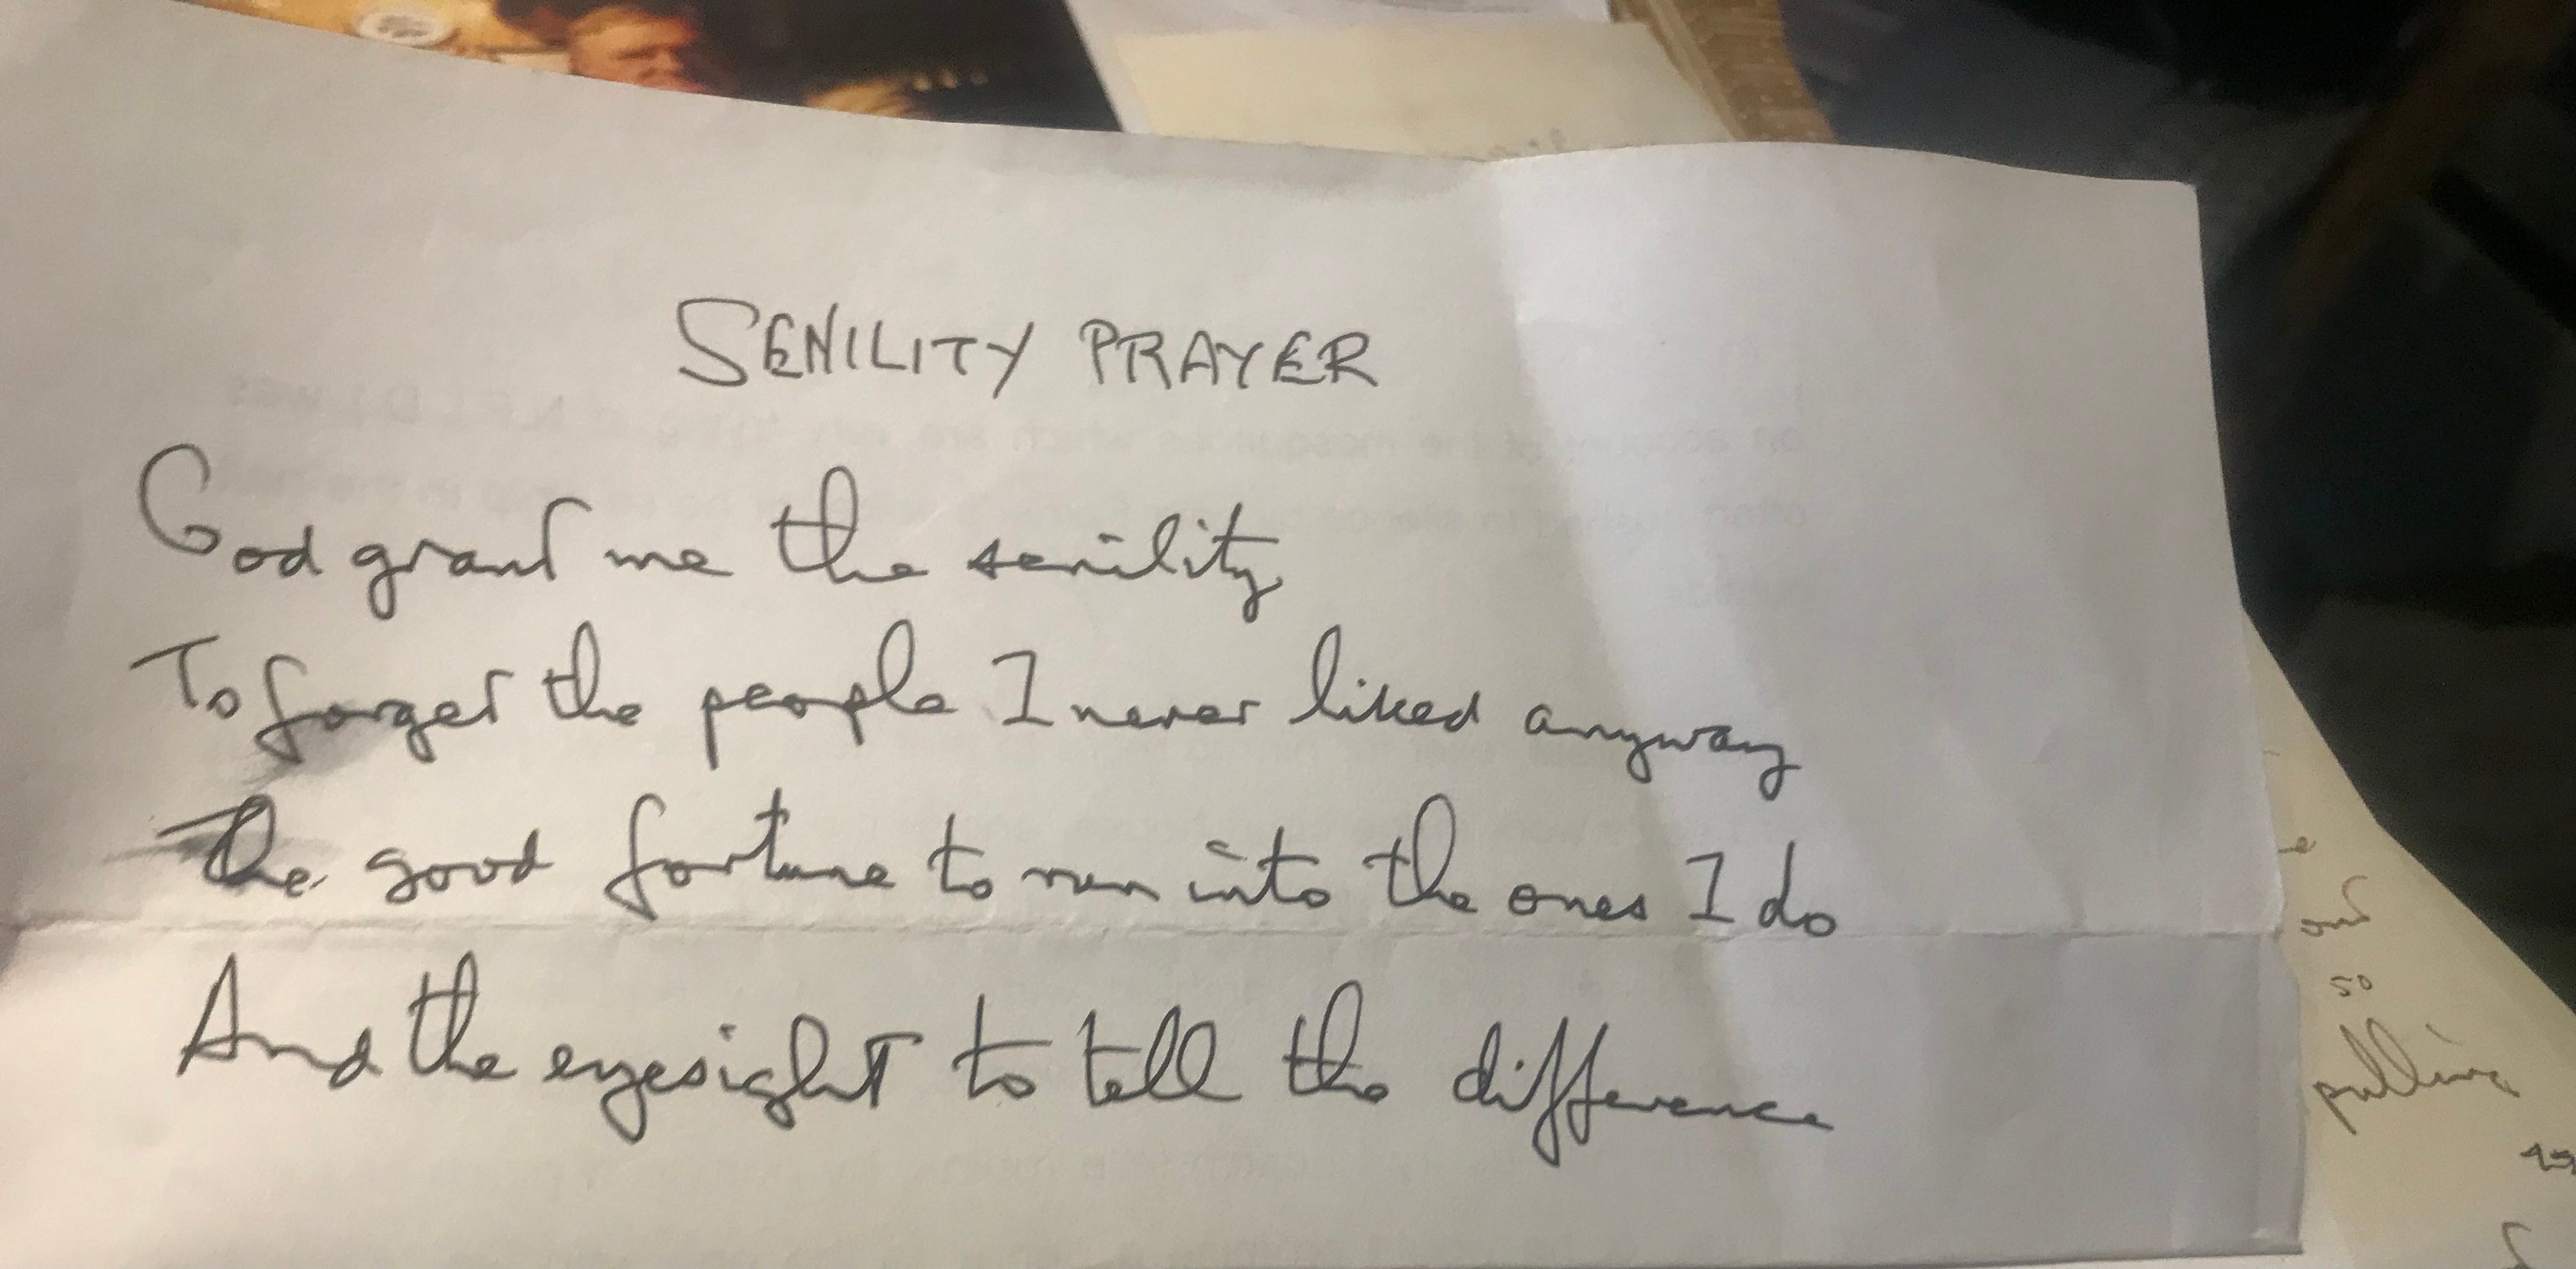 SENILITY PRAYER
God grant me the senility
To forget the people I never liked anyway
The good fortune to run into the ones I do
And the eyesight to tell the difference
so
pulling